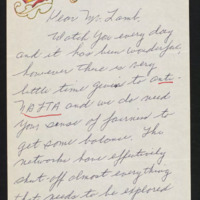 Dear Mr. Lamb,
Watch you every day
and it has been wonderful,
however there is very
little time given to anti-
NAFTA and we do need
your sense of fairness to
get some balance. The
networks have effectively
shut-off almost everything
that needs to be explored